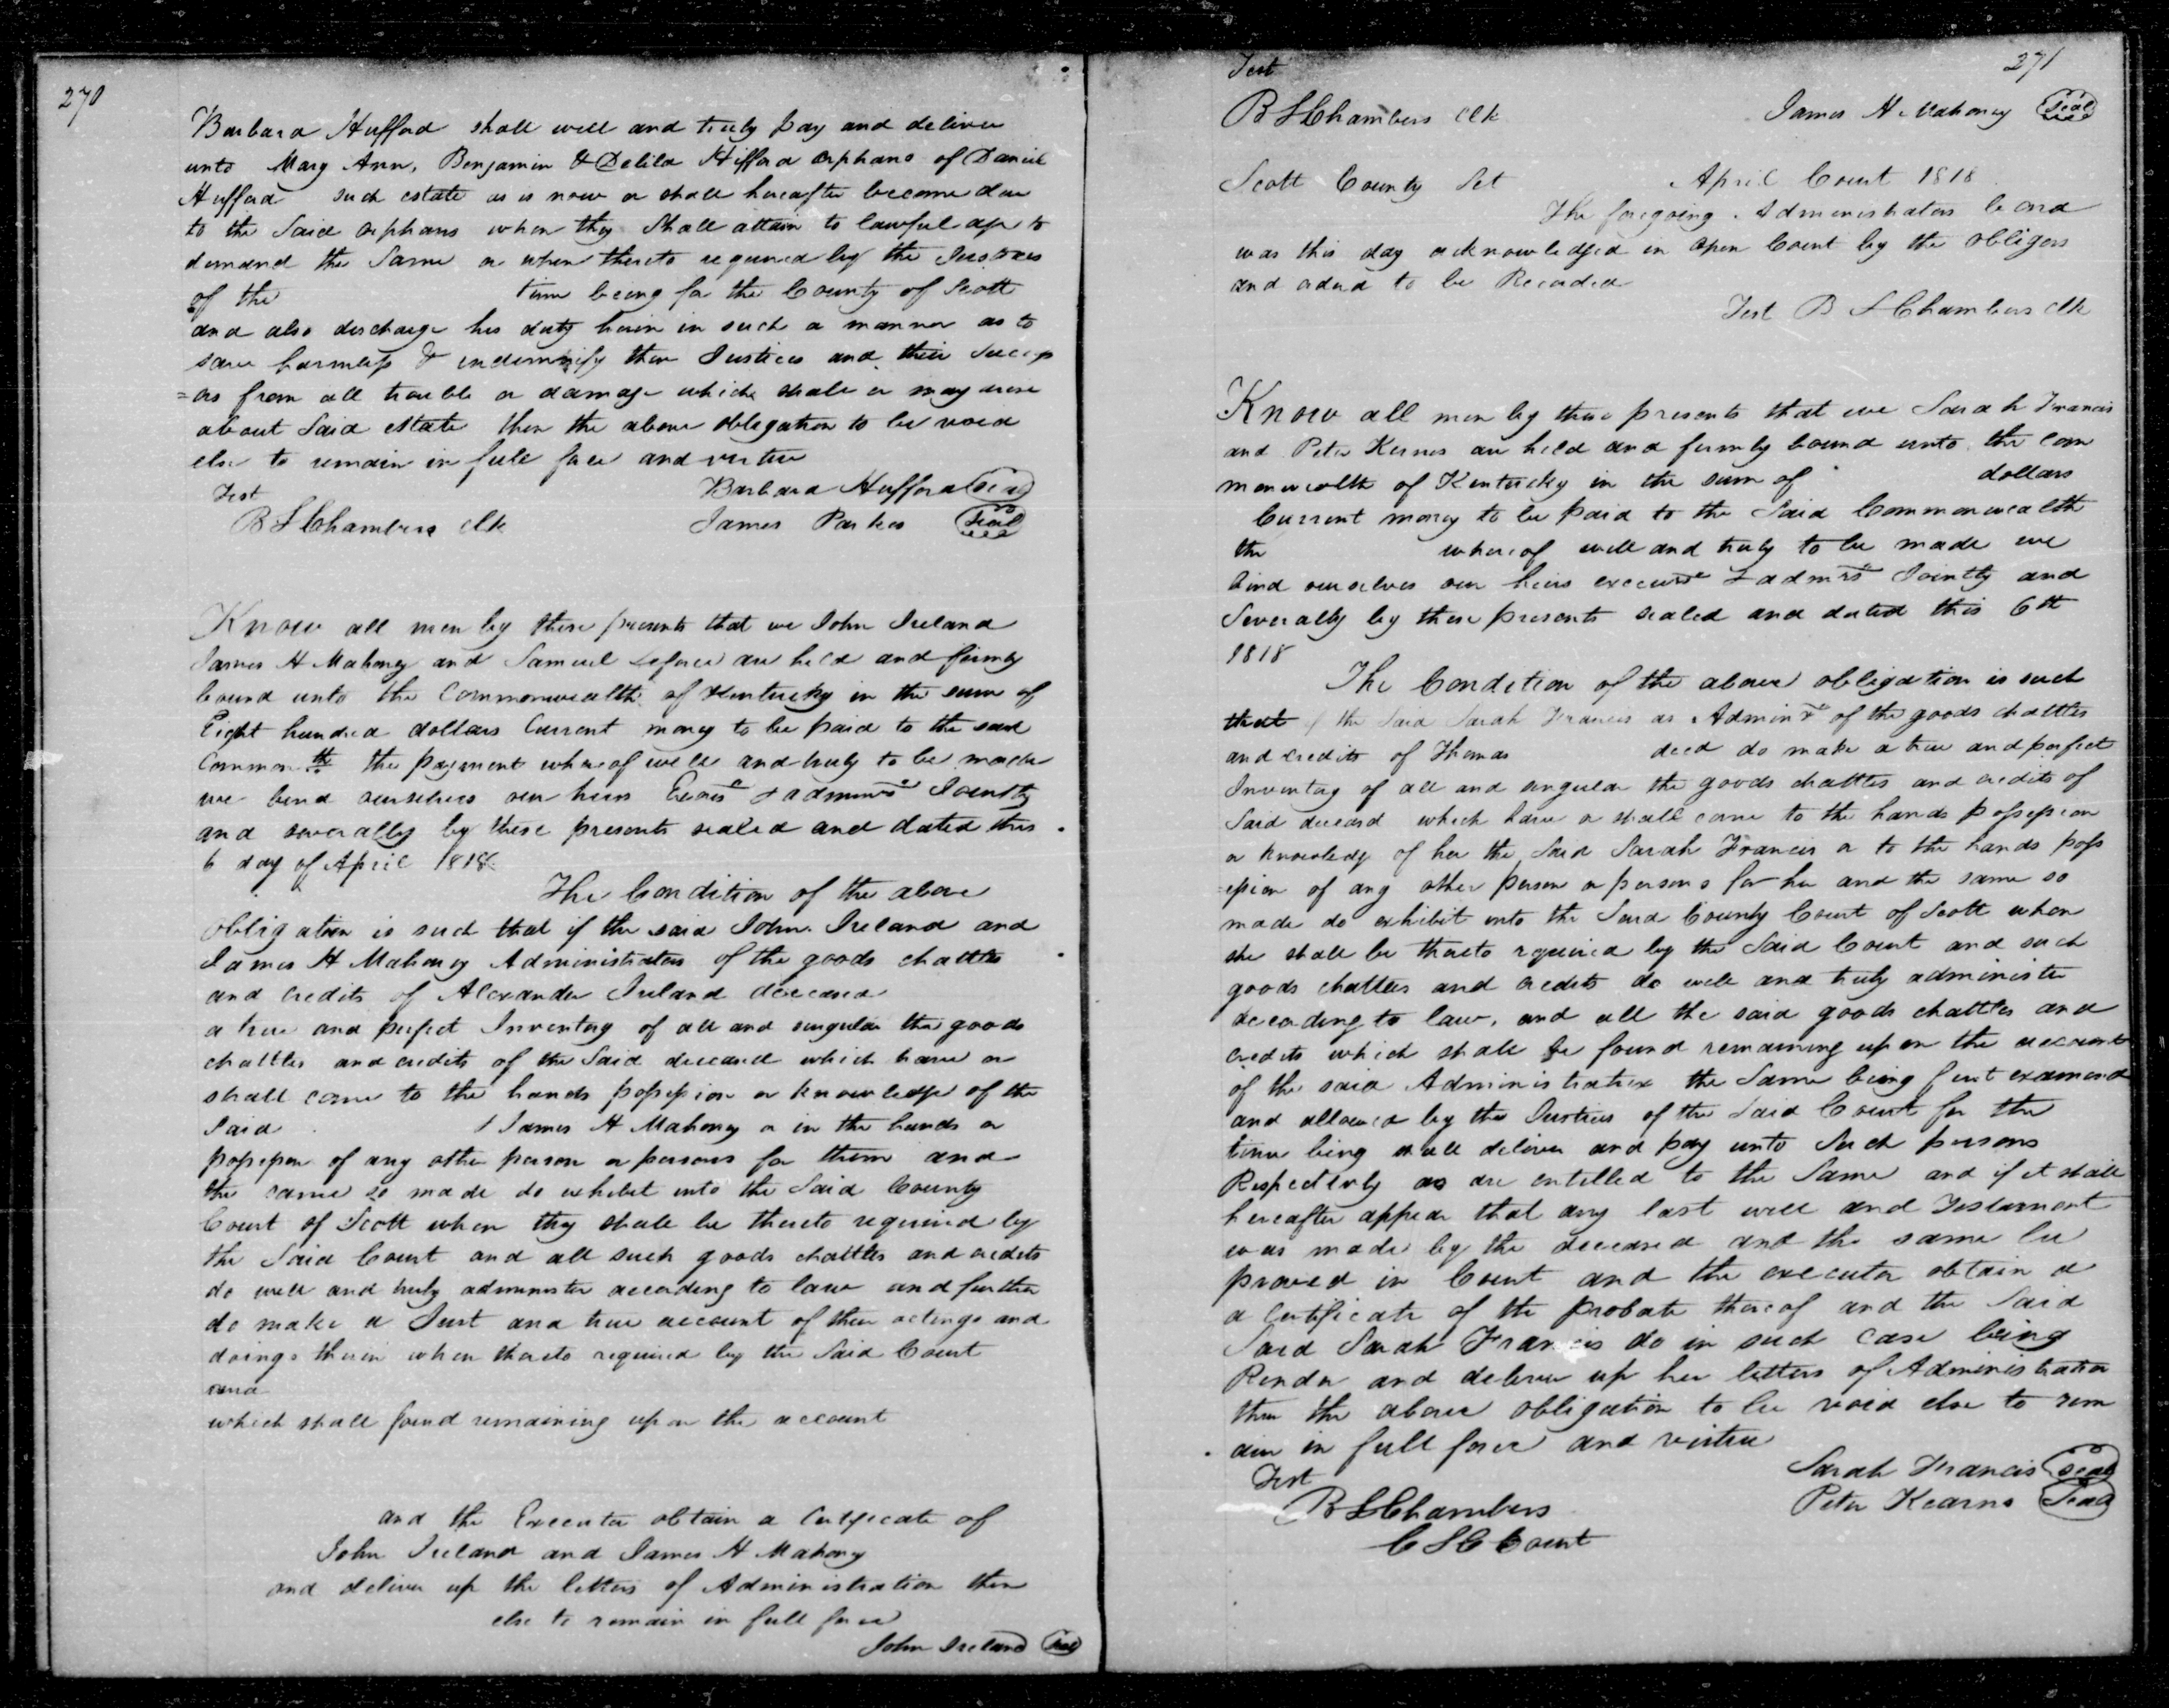 270
Barbara Hufford shall well and truly pay and deliver
unto Mary Ann, Benjamin & Delila Hifford orphans of Daniel
Hufford such estate as is now or shall hereafter become due
to the Said orphans when they Shall attain to lawful age to
demand the Same or when thereto required by the Justices
of the time being for the County of Scott
and also discharge his duty herin in such a manner as to
save harmless & indemnify then Justices and their Success
=ors from all trouble or damage which shall or may arise
about Said estate then the above obligation to be void
else to remain in full force and virtue
Test Barbara Hufford Seal
B S Chambers Clk James Parker Seal
Know all men by these presents that we John Ireland
James H Mahoney and Samuel are held and firmly
bound unto the Commonwealth of Kentucky in the sum of
Eight hundred dollars Current money to be paid to the said
Common th the payment whereof well and truly to be made
we bind ourselves our heirs & Jointly
and severally by these presents sealed and dated this
6 day of April 1818
The Condition of the above
obligation is such that if the said John Ireland and
James H Mahoney Administrators of the goods chattles
and credits of Alexander Ireland deceased
a true and perfect Inventory of all and singular the goods
chattles and credits of the Said deceased which have or
shall come to the hands possession or knowledge of the
Said James H Mahoney or in the hands or
possession of any other person or persons for them and
the same so made do exhibit into the Said County
Court of Scott when they shall be thereto required by
the Said Court and all such goods chattles and credits
do well and truly administer according to law and further
do make a Just and true account of their actings and
doings therein when thereto required by the Said Court
and
which shall found remaining upon the account
and the Executor obtain a Certificate of
John Ireland and James H Mahony
and deliver up the letters of Administration then
else to remain in full force
John Ireland Seal
271
Test
B S Chambers Clk James H Mahoney Seal
Scott County Sct April Court 1818
The foregoing Administrators bond
was this day acknowledged in open Court by the obligors
and orderd to be Recorded
Test B S Chambers Clk
Know all men by these presents that we Sarah Francis
and Peter Kernes are held and firmly bound unto the Com
monwealth of Kentucky in the sum of dollars
Current money to be paid to the Said Commonwealth
the whereof well and truly to be made we
bind ourselves our heirs & admrs Jointly and
Severally by these presents sealed and dated this 6th
1818
The Condition of the above obligation is such
that if the Said Sarah Francis as Adminx of the goods chattles
and credits of Thomas decd do make a true and perfect
Inventory of all and singular the goods chattles and credits of
Said deceasd which have or shall come to the hands possession
or knowledge of her the Said Sarah Francis or to the hands poss
=ession of any other person or persons for her and the same so
made do exhibit into the Said County Court of Scott when
she shall be thereto required by the Said Court and such
goods chattles and credits do well and truly administer
according to law, and all the said goods chattles and
credits which shall be found remaining upon the account
of the said Administratrix the Same being first examend
and allowed by the Justices of the Said Court for the
time being shall deliver and pay unto Such persons
Respectively as are entitled to the Same and if it shall
hereafter appear that any last will and Testament
was made by the deceased and the same be
proved in Court and the executor obtain a
a Certificate of the probate thereof and the Said
Said Sarah Francis do in such case being
Render and deliver up her letters of Administration
then the above obligation to be void else to rem
ain in full force and virtue
Test Sarah Francis Seal
B S Chambers Peter Kearns Seal
C S C Court